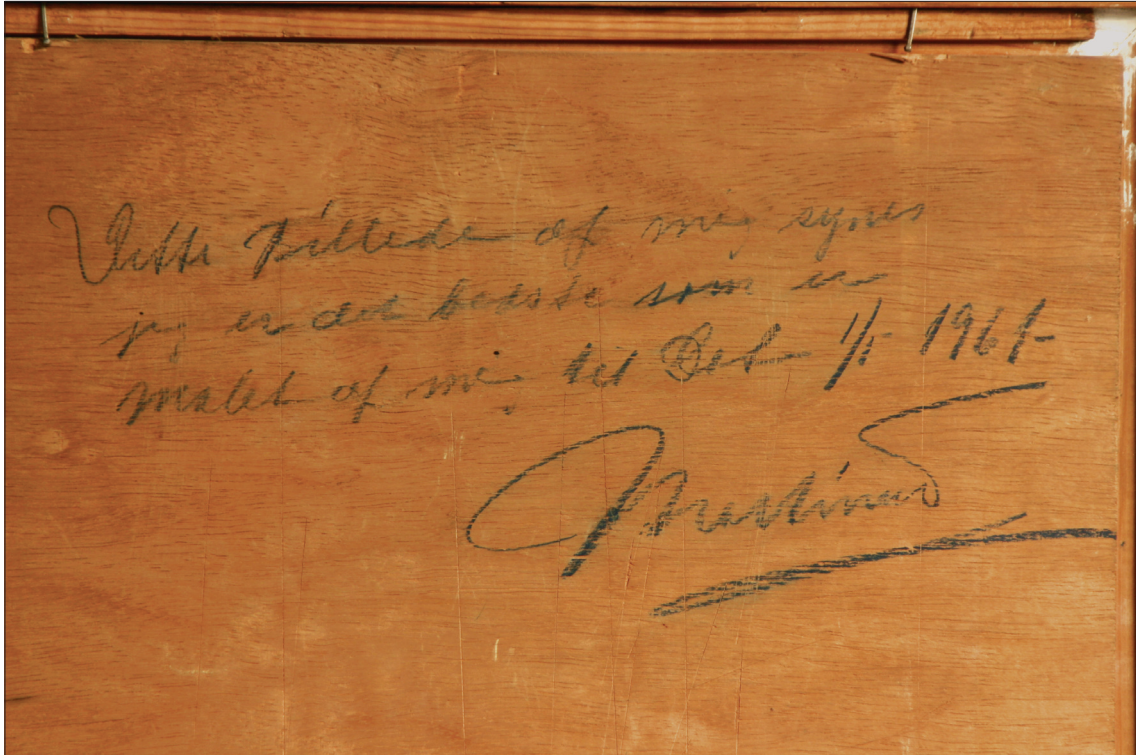 Dette Billede af mig synes
jeg er det bedste som er
malet af mig til Dato 1/5 1961-
Martinus